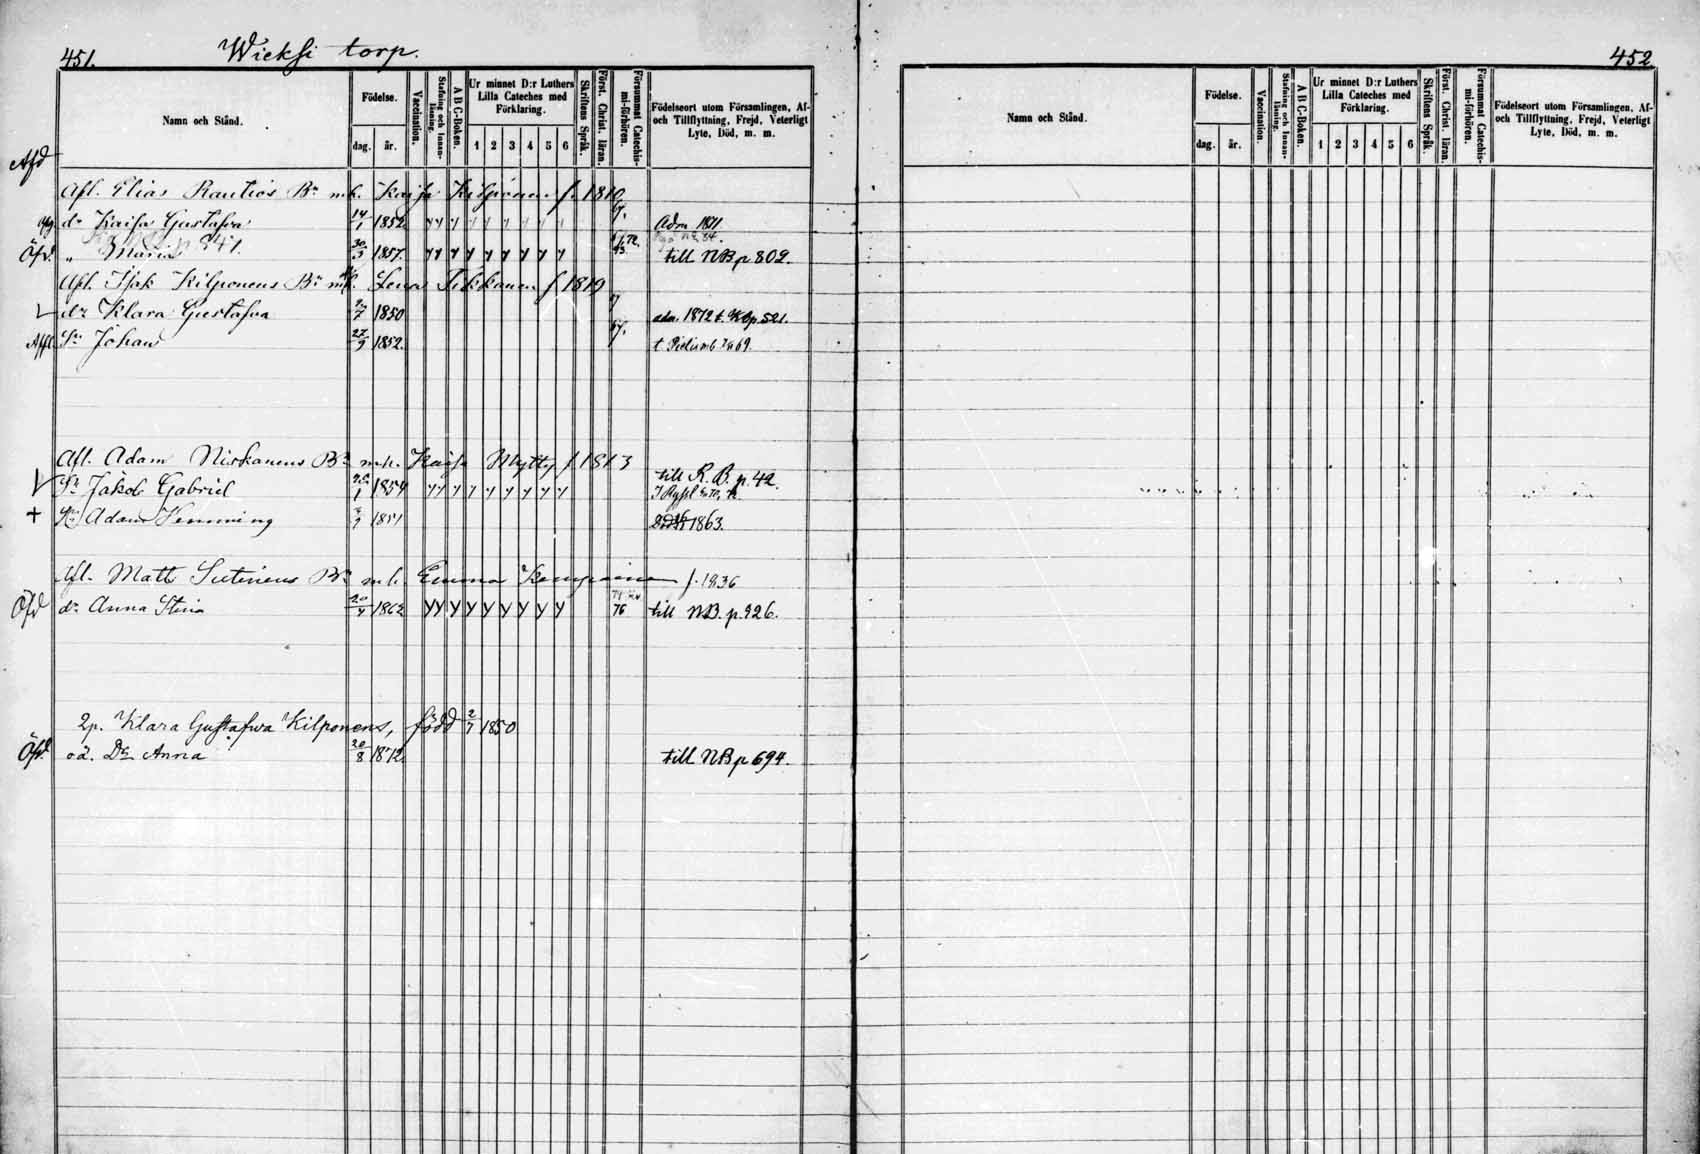 451. Wieksi torp.
Namn och Stånd. Födelse. dag. år. Vaccination. Stafning och Innan-läsning. A B C-Boken. Ur minnet D:r Luthers Lilla Cateches med Förklaring. 1 2 3 4 5 6 Skriftens Språk. Först. Christ. läran. Försummat Catechis-mi-förhören. Födelseort utom Församlingen, Af- och Tillflyttning, Frejd, Veterligt Lyte, Död, m. m.
Afd
Afl. Elias Rautios Bn m.h. Kaisa Kilponen f. 1810
dr Kaisa Gustafva 14/1 1852 y y y y y y y y y 67. Adm 1871
Öfd. " Maria 341. 30/3 1857. y y y y y y y y y till NB p 802.
Afl. Isak Kilponens Bn m.h. Lena Tikkanen f 1819
dr Klara Gustafva 2/7 1850 adm. 1872 t. Kbp. 521.
Affl. Sn Johan 27/9 1852. 67. t. 69.
Afl. Adam Niskanens Bn m.h. Kaisa Mytty f 1813
Sn Jakob Gabriel 1854 y y y y y y y y y till R. B. p. 42.
+ Sn Adam Hemming 1851 1863.
Afl. Matt Sutinens Bn m.h. Emma f. 1836
Öfd dr Anna Stina 20/4 1862 y y y y y y y y y 76 till NB. p. 926.
2p. Klara Gustafwa Kilponens, född 2/7 1850
Öfd. oä. Dr Anna 20/8 1872 till NB p 694.
452
Namn och Stånd. Födelse. dag. år. Vaccination. Stafning och Innan-läsning. A B C-Boken. Ur minnet D:r Luthers Lilla Cateches med Förklaring. 1 2 3 4 5 6 Skriftens Språk. Först. Christ. läran. Försummat Catechis-mi-förhören. Födelseort utom Församlingen, Af- och Tillflyttning, Frejd, Veterligt Lyte, Död, m. m.